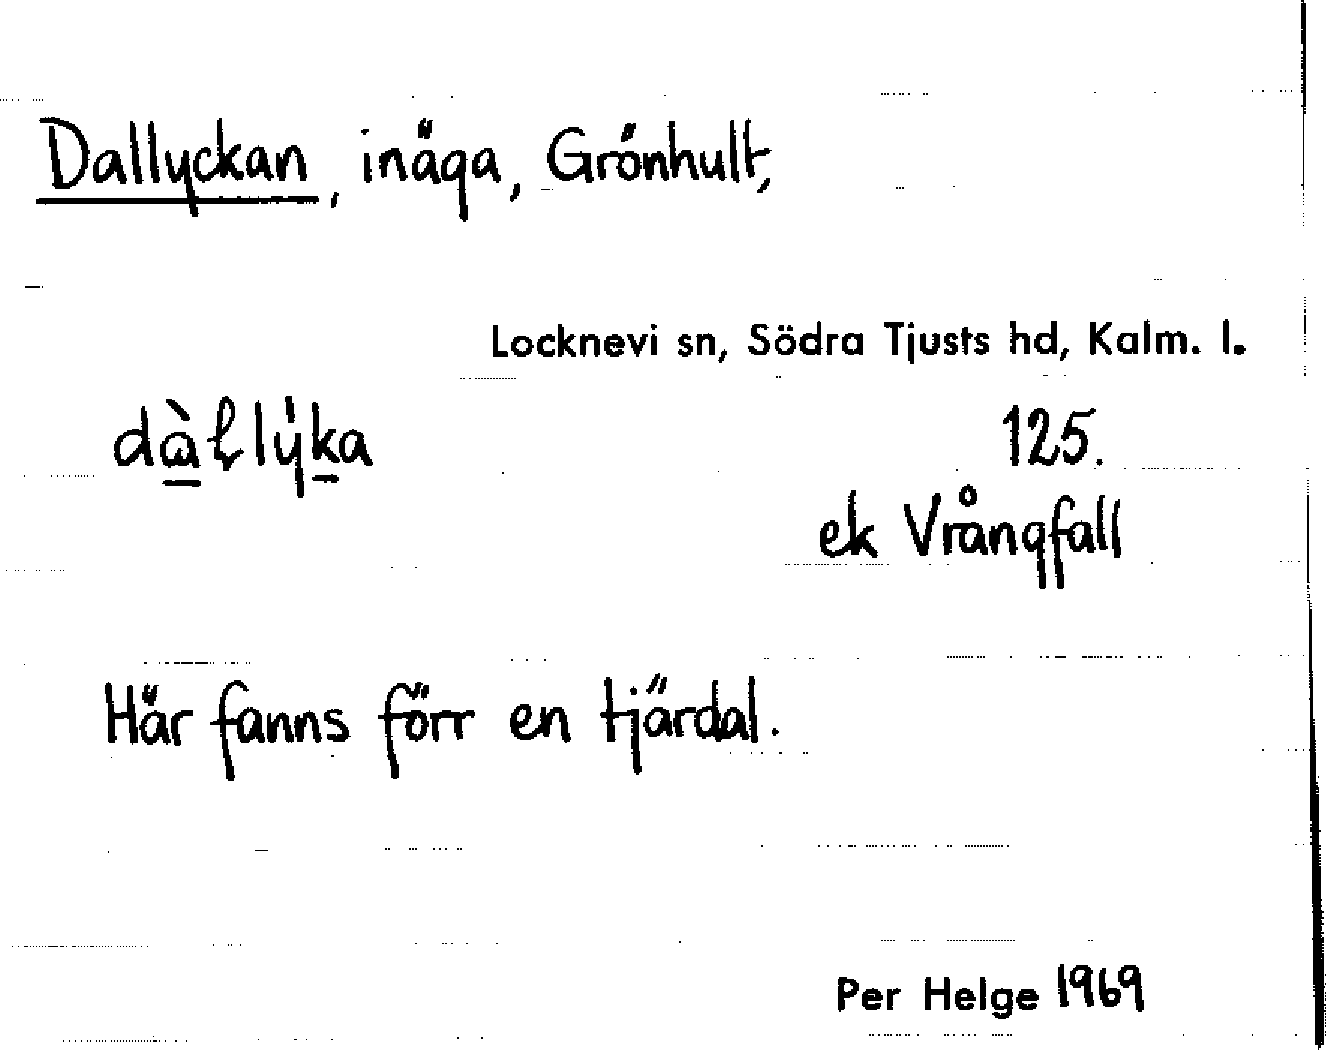 Dallyckan, inäga, Grönhult,
Locknevi sn, Södra Tjusts hd, Kalm. l.
125.
ek Vrångfall
Här fanns förr en tjärdal.
Per Helge 1969